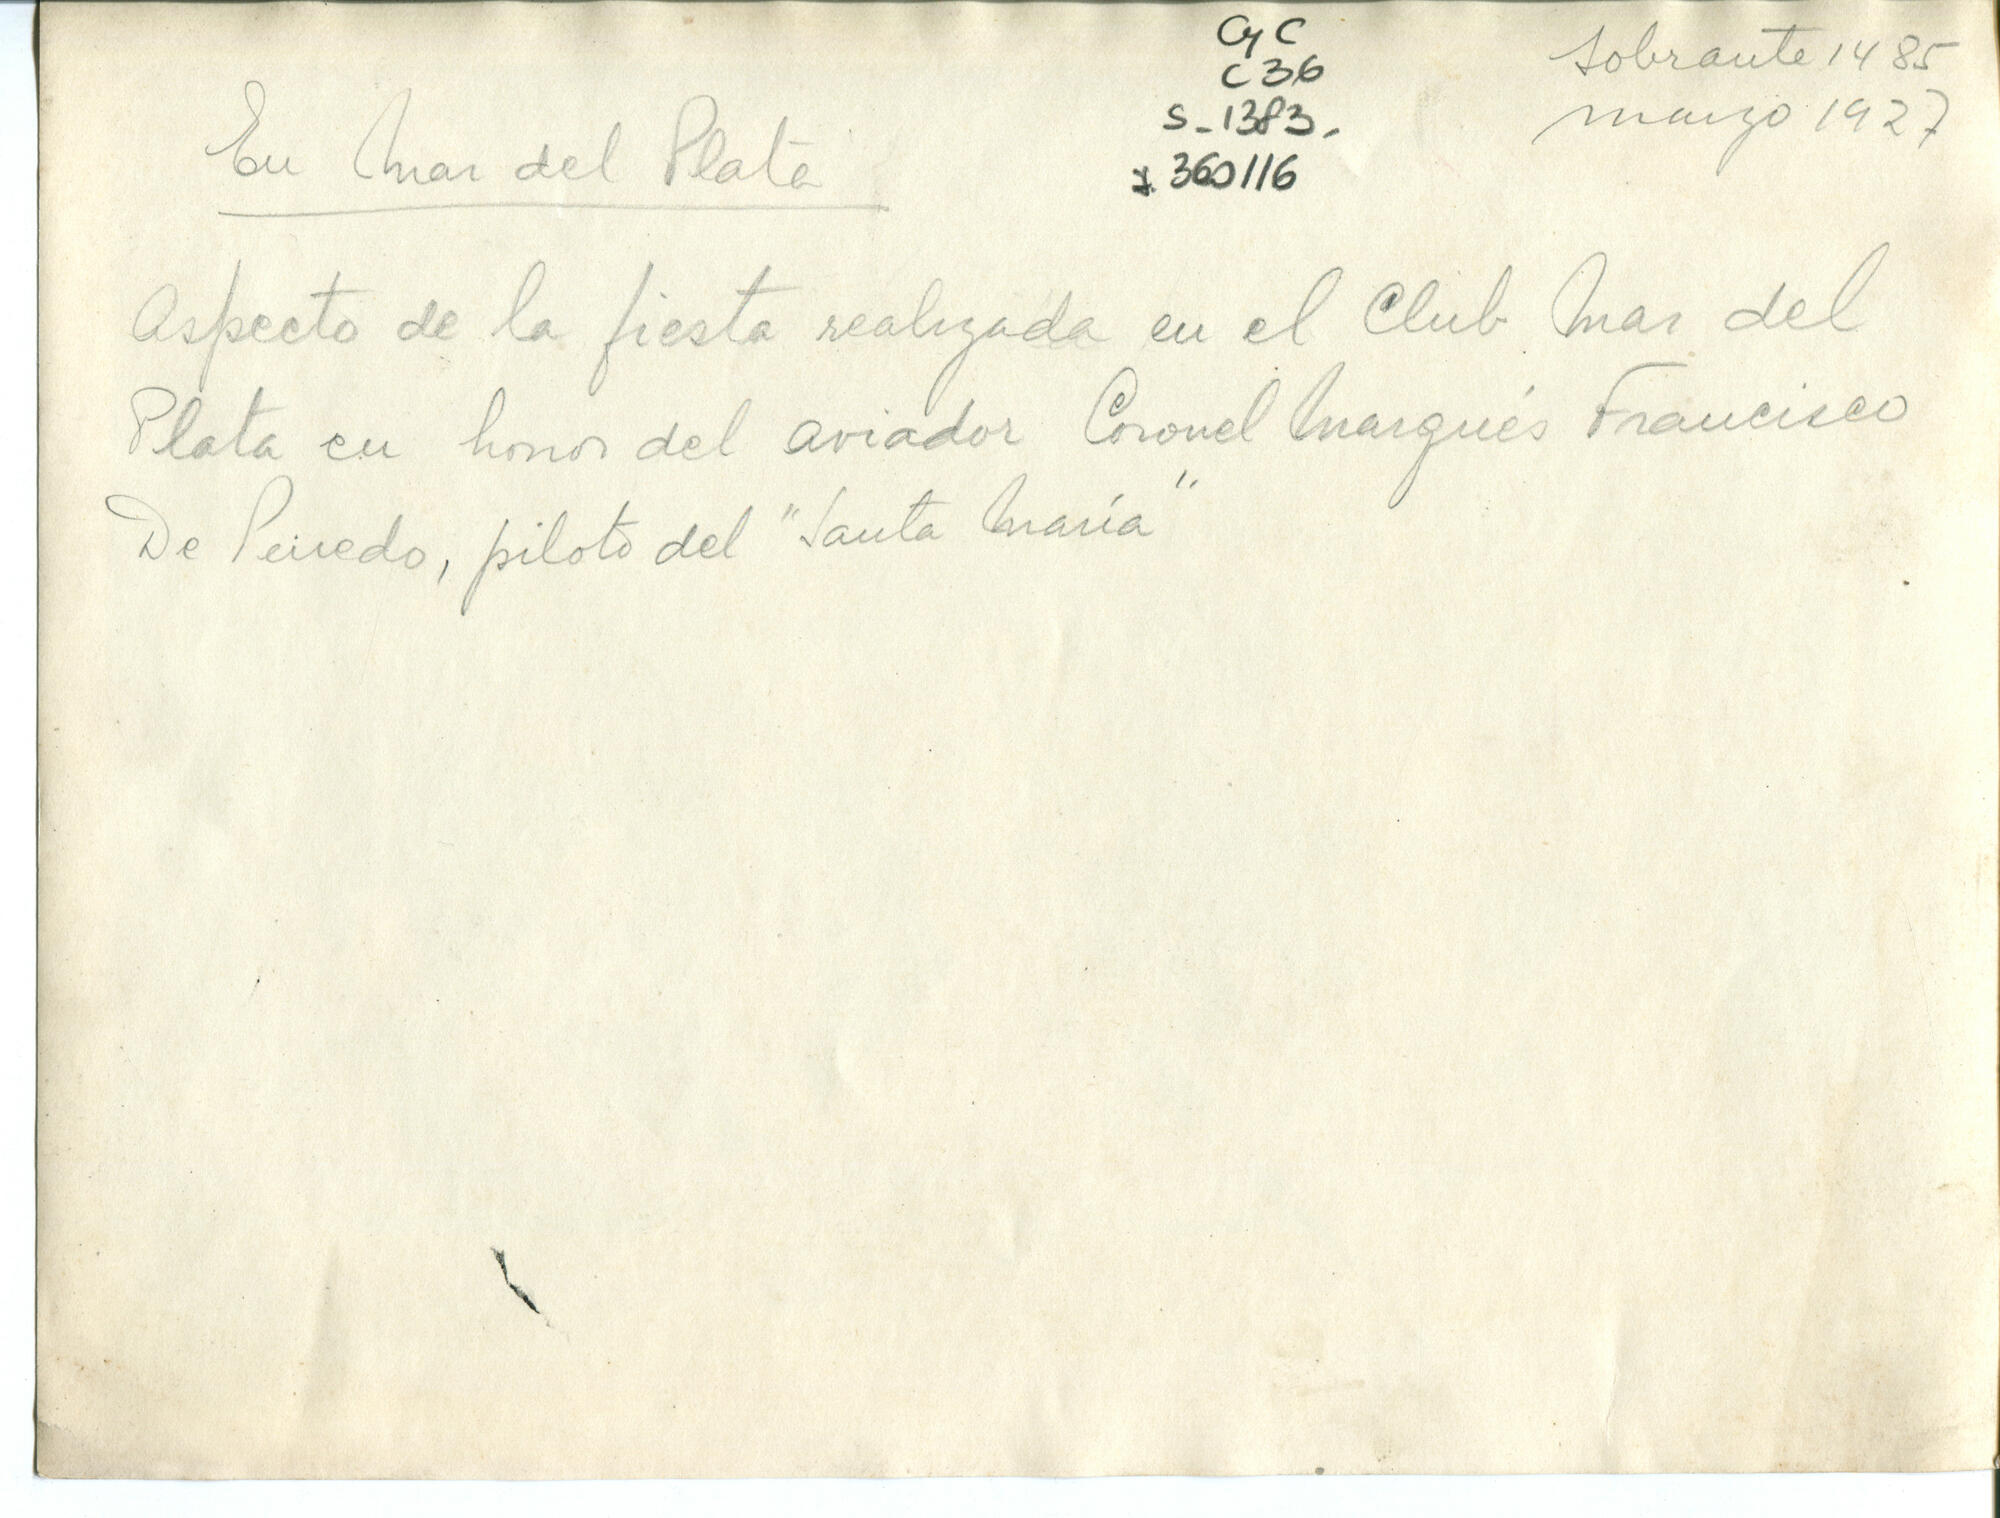 CyC
C36
S-1383.
360116
Sobrante 1485
marzo 1927
En Mar del Plata
Aspecto de la fiesta realizada en el Club Mar del
Plata en honor del aviador Coronel Marqués Francisco
De Pinedo, piloto del "Santa María"